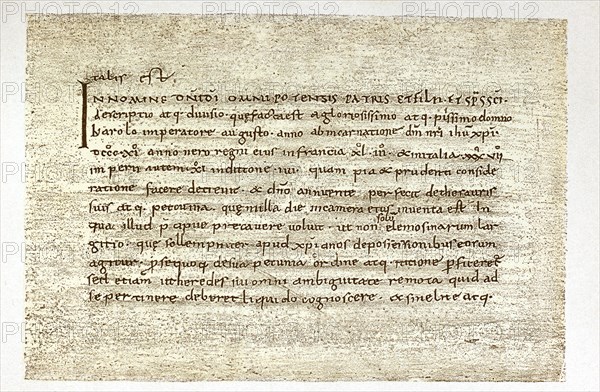 talis est.
IN NOMINE DNI DI OMNIPOTENTIS PATRIS ET FILII ET SPS SCI.
descriptio atq; divisio que facta est a gloriosissimo atq; piissimo domno
karolo imperatore augusto. anno ab incarnatione dni nri ihu xpi
DCCC XI anno vero regni eius in francia XL III & in italia XXX VII
imperii autem XI indictione IIII quam pia & prudenti conside
ratione facere decrevit & dno annuente perfecit de thesauris
suis atq; pecunia que in illa die in camera eius inventa est In
qua illud p cipue precavere voluit ut non solu elemosinarum lar
gitio que sollempniter apud xpianos de possessionibus eorum
agitur p se quoq; de sua pecunia ordine atq; ratione pficeret
sed etiam ut heredes sui omni ambiguitate remota quid ad
se pertinere deberet liquido cognoscere & sine lite atq;
PHOTO12